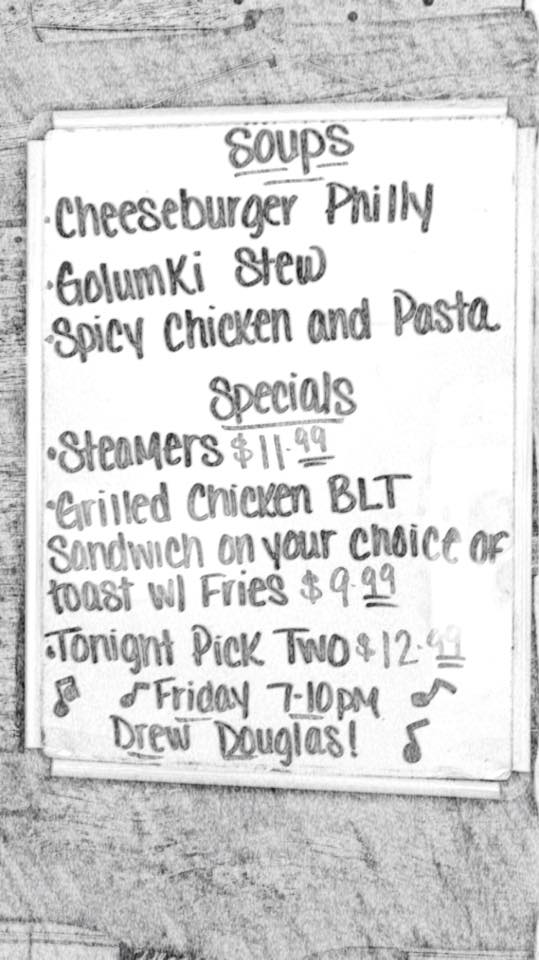 Soups
·Cheeseburger Philly
·Golumki Stew
·Spicy Chicken and Pasta
Specials
·Steamers $11.99
·Grilled Chicken BLT
Sandwich on your choice of
toast w/ Fries $9.99
·Tonight Pick Two $12.99
♫ ♪Friday 7-10pm ♪
Drew Douglas! ♪